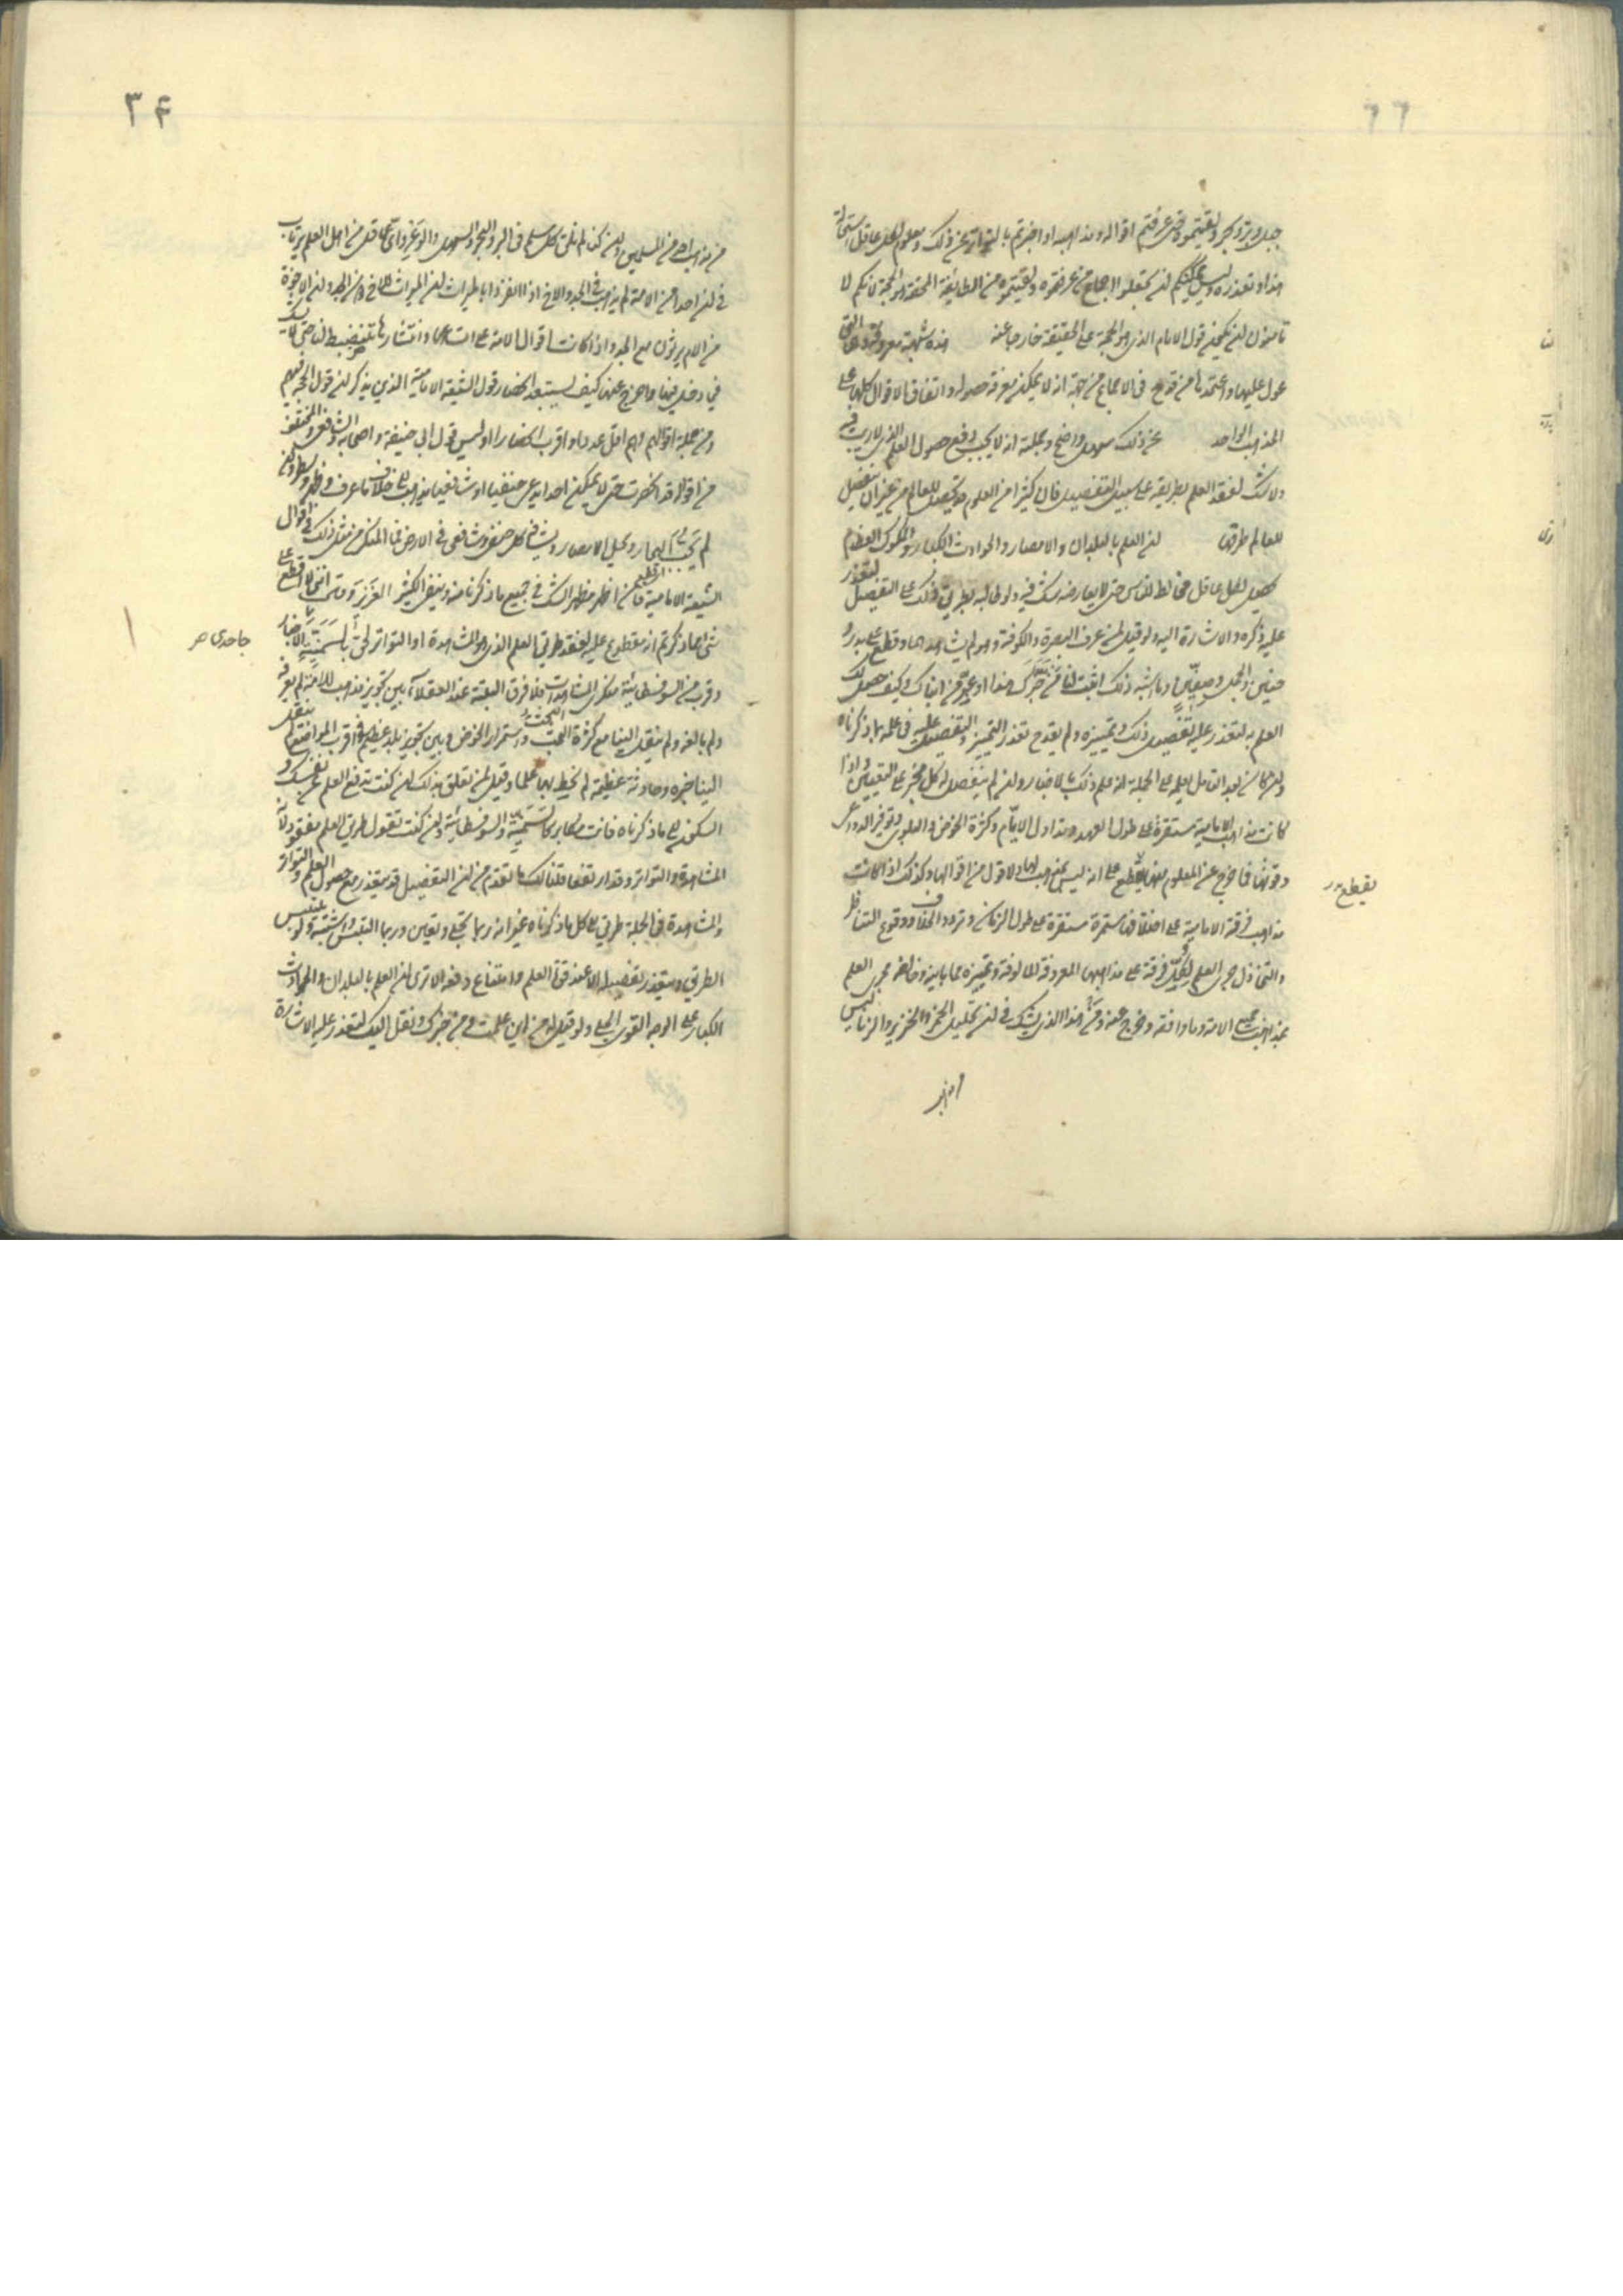 ٦٦
جبل وبر وبحر ولقيتموه حتى عرفتم اقواله ومذاهبه او اخبرتم بالتواتر عن ذلك ومعلوم لكل عاقل استحالة
هذا وتعذره وليس يمكنكم ان تجعلوا الاجماع من عرفتموه ولقيتموه من الطائفة المحقة هو الحجة لانكم لا
تأمنون ان يكون قول الامام الذي هو الحجة على الحقيقة خارجا عنه هذه شبهة معروفة وهي التي
عول عليها واعتمد نا من قدح في الاجماع من جهة انه لا يمكن معرفة حصوله واتفاق الاقوال كلها على
المذهب الواحد عن ذلك سهل واضح وجملته انه لا يجب دفع حصول العلم الذي لا ريب فيه
ولا شك لفقد العلم بطريقه على سبيل التفصيل فان كثيرا من العلوم قد يحصل للعالم من غير ان يتفصل
للعالم طرقها ان العلم بالبلدان والامصار والحوادث الكبار والملوك العظام
يحصل لكل عاقل مخالط للناس حتى لا يعارضه شك فيه ولو طالبه بطريق ذلك على التفصيل لتعذر
عليه ذكره والاشارة اليه ولو قيل لمن عرف البصرة والكوفة وهو لم يشاهدهما وقطع على بدر و
حنين والجمل وصفين وما اشبه ذلك اثبت لنا من خبرك بهذا او عين من انباك وكيف حصل لك
العلم به لتعذر عليه تفصيل ذلك وتمييزه ولم يقدح تعذر التمييز والتفصيل عليه في علمه بما ذكرناه
وان كان بعد التامل يعلم على الجملة انه علم ذلك بالاخبار وان لم يتفصل له كل مخبر على التعيين واذا
كانت مذاهب الامامية مستقرة على طول العهد وتداول الايام وكثرة الخوض والبلوى وتوفر الدواعي
وقوتها فما خرج عن المعلوم منها يقطع على انه ليس بمذهب لها ولا قول من اقوالها وكذلك اذا كانت
يقطع
مذاهب فرقة الامامية على اختلافها مستمرة مستقرة على طول الزمان وتردد الخلاف ووقوع التناظر
والتجادل جرى العلم لكل فرقة على مذاهبها المعروفة المالوفة وتميزه مما باينه وخالفه مجرى العلم
بمذاهب جميع الامة وما وافقه وخرج عنه ومن هذا الذي يشك في ان تحليل الخمر والخنزير والربا ليس
٣٤
من مذاهب احد من المسلمين وان كنا لم نلق كل مسلم في البر والبحر والسهل والوعر واي عاقل من اهل العلم يرتاب
في ان احدا من الامة لم يذهب في الجد والاخ اذا انفردا بالميراث ان الميراث للاخ دون الجد وان الاخوة
من الام يرثون مع الجد واذا كانت اقوال الامة على اتساعها وانتشارها تنضبط لنا حتى لا
في دخل فيها وما خرج عنها فكيف يستبعد انحصار قول الشيعة الامامية الذي يذكر ان قول الحجة فيهم
ومن جملة اقوالهم وهم اقل عددا واقرب انحصارا اوليس قول ابي حنيفة واصحابه والشافعي والمختلف
من اقواله قد انحصرت حتى لا يمكن احدا يدعي حنفيا او شافعيا يذهب الى خلاف ما عرف وظهر وسطر وان
لم نجب البحار ونجل الامصار ونلق كل حنفي وشافعي في الارض فما المنكر من مثل ذلك في اقوال
الشيعة الامامية فان اظهر مظهر الشك في جميع ما ذكرناه وينفي الكثير الغزير وقال انني لا اقطع على
شيء مما ذكرتم انه مقطوع عليه لفقد طريق العلم الذي هو المشاهدة او التواتر لحق بالسمنية الاخبار
جاحدي
وقرب من السوفسطائية منكري المشاهدات فلا فرق البتة عند العقلاء بين تجويز مذاهب للامة لم نعرفه
ولم نالفه ولم ينقل الينا مع كثرة البحث واستمرار الخوض وبين تجويز بلد عظيم في اقرب المواضع لم ينقل
الينا خبره وحادثة عظيمة لم نحط بها علما وقيل لمن تعلق بذلك ان كنت تدفع العلم عن نفسك و
السكون الى ما ذكرناه فانت مكابر كالسمنية والسوفسطائية وان كنت تقول طريق العلم مفقود لانه
المشاهدة والتواتر وقد ارتفعا قلنا لك ما تقدم من ان التفصيل قد يتعذر مع حصول العلم والتواتر
والمشاهدة في الجملة طريق الى كل ما ذكرناه غير انه ربما تجلى وتعين وربما التبس واشتبه وليس يلتبس
الطريق ويتعذر تفصيله الا عند قوة العلم وامتناع دفعه الا ترى ان العلم بالبلدان والحوادث
الكبار على الوجه القوي الجلي ولو قيل لاحد من اين علمت ومن خبرك ونقل اليك لتعذر عليه الاشارة